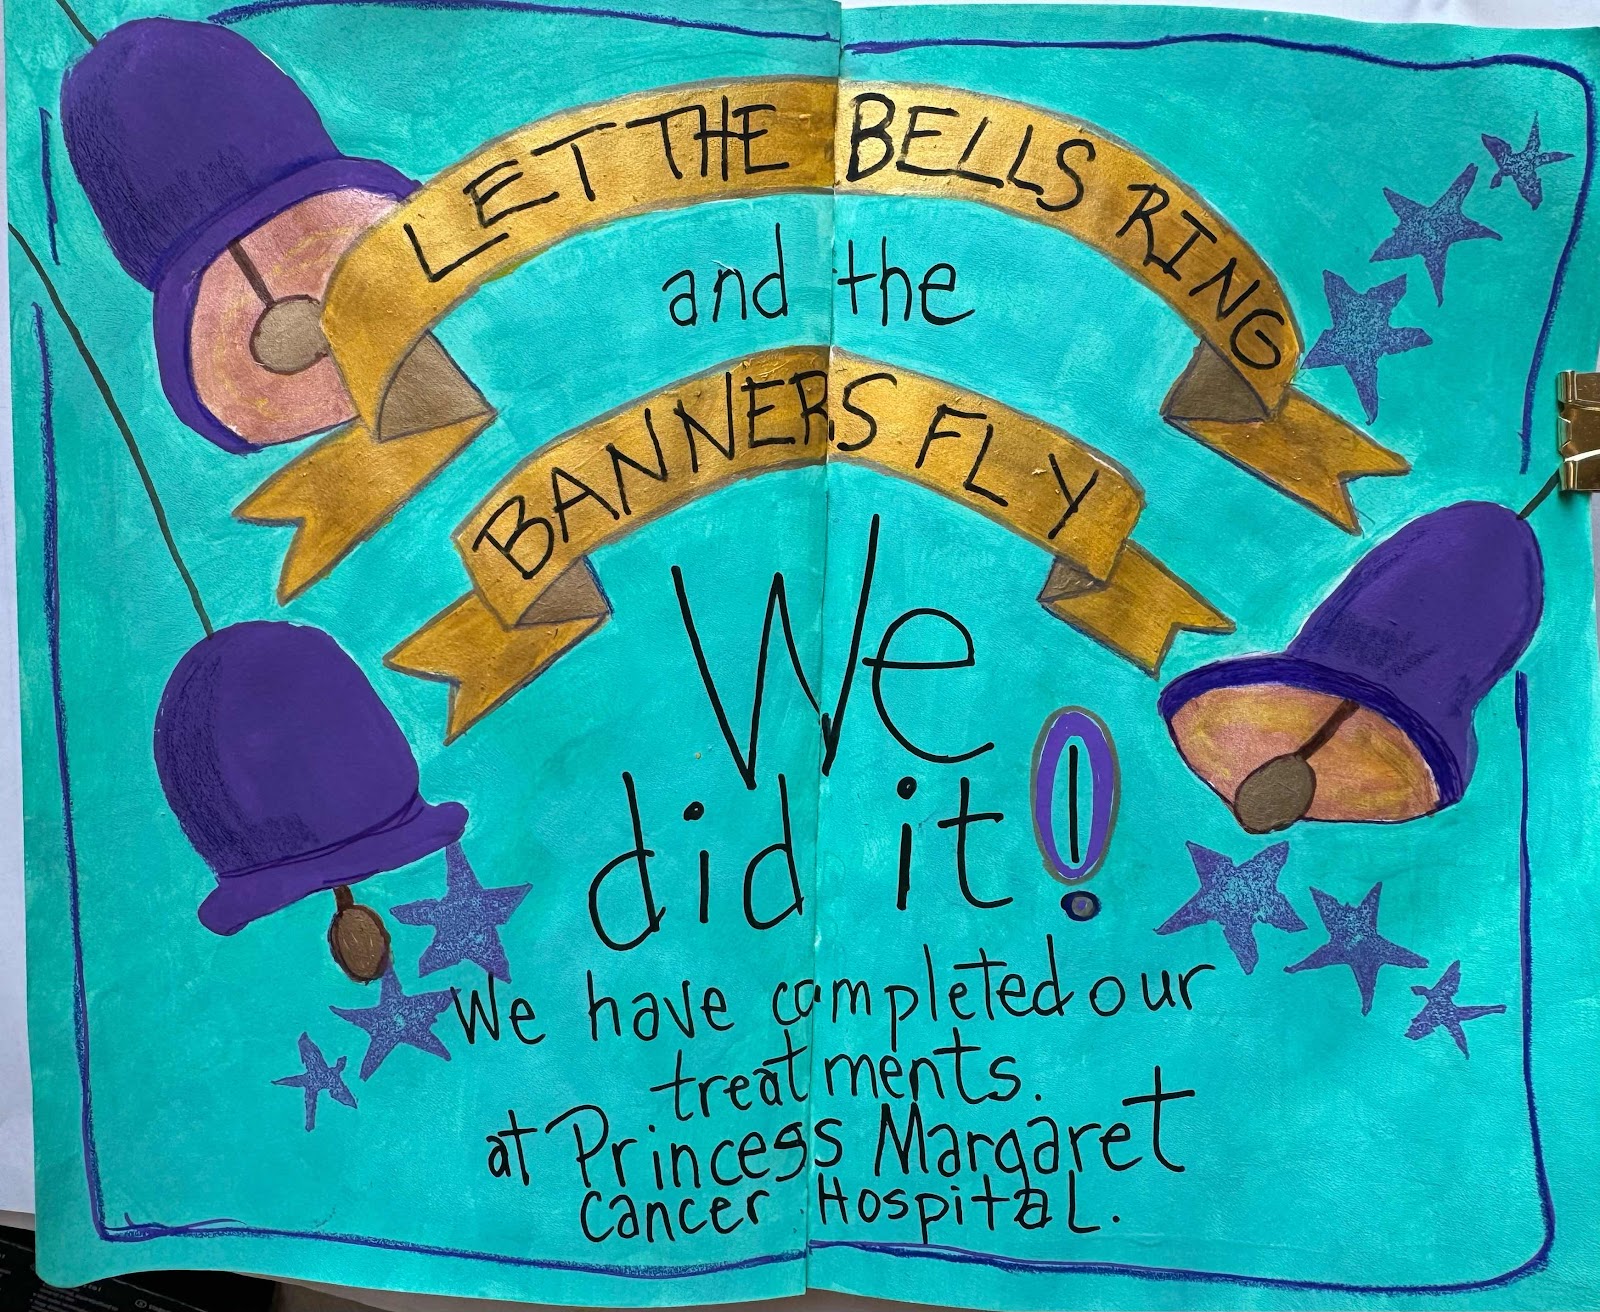 LET THE BELLS RING
and the
BANNERS FLY
We
did it!
We have completed our
treatments.
at Princess Margaret
cancer Hospital.